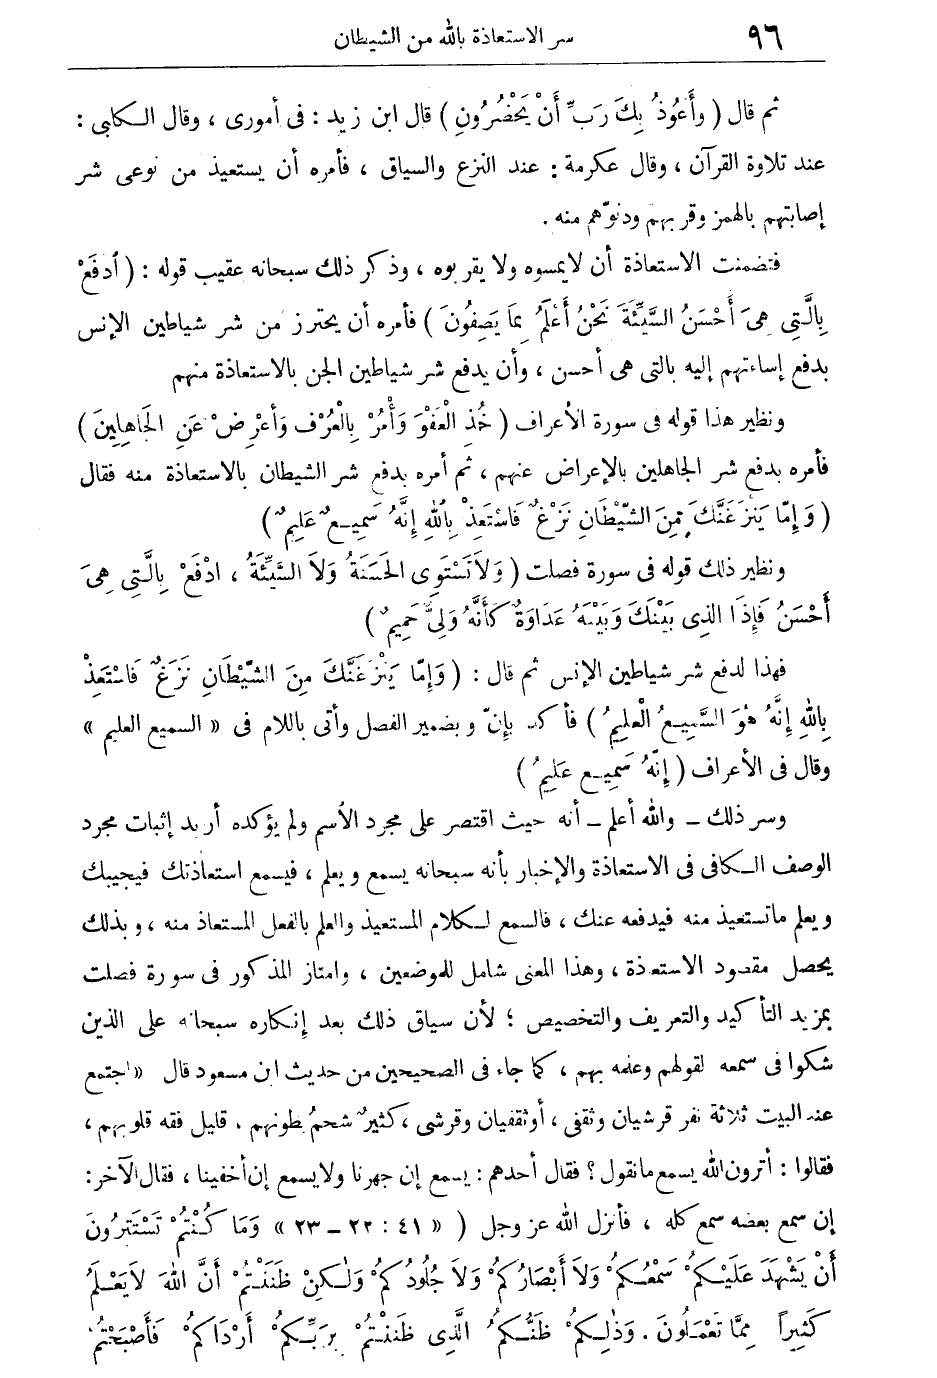 ٩٦
سر الاستعاذة بالله من الشيطان
ثم قال ( وأَعُوذُ بِكَ رَبِّ أَنْ يَحْضُرُونِ ) قال ابن زيد : فى أمورى ، وقال الكلبى :
عند تلاوة القرآن ، وقال عكرمة : عند النزع والسياق ، فأمره أن يستعيذ من نوعى شر
إصابتهم بالهمز وقربهم ودنوّهم منه .
فتضمنت الاستعاذة أن لايمسوه ولا يقربوه ، وذكر ذلك سبحانه عقيب قوله : ( ادفَعْ
بِالَّتِى هِىَ أَحْسَنُ السَّيِّئَةَ نَحْنُ أَعْلَمُ بِمَا يَصِفُونَ ) فأمره أن يحترز من شر شياطين الإنس
بدفع إساءتهم إليه بالتى هى أحسن ، وأن يدفع شر شياطين الجن بالاستعاذة منهم
ونظير هذا قوله فى سورة الأعراف ( خُذِ الْعَفْوَ وَأْمُرْ بِالْعُرْفِ وَأعْرِضْ عَنِ الجَاهِلِينَ )
فأمره بدفع شر الجاهلين بالإعراض عنهم ، ثم أمره بدفع شر الشيطان بالاستعاذة منه فقال
( وَإِمّا يَنْزَغَنَّكَ مِنَ الشّيْطَانِ نَزْغٌ فَاسْتَعِذْ بِاللهِ إِنَّهُ سَمِيعٌ عَلِيمٌ )
ونظير ذلك قوله فى سورة فصلت ( وَلاَ تَسْتَوِى الحَسَنَةُ وَلاَ السَّيِّئَةُ ، ادْفَعْ بِالَّتِى هِىَ
أَحْسَنُ فَإِذَا الذِى بَيْنَكَ وَبَيْنَهُ عَدَاوَةٌ كَأَنَّهُ وَلِىٌّ حَمِيمٌ )
فهذا لدفع شر شياطين الإنس ثم قال : ( وَإِمّا يَنْزَغَنَّكَ مِنَ الشّيْطَانِ نَزْغٌ فَاسْتَعِذْ
بِاللهِ إِنَّهُ هُوَ السَّمِيعُ الْعَلِيمُ ) فأكد بإنّ وبضمير الفصل وأتى باللام فى « السميع العليم »
وقال فى الأعراف ( إِنّهُ سَمِيع عَلِيمٌ )
وسر ذلك ــ والله أعلم ــ أنه حيث اقتصر على مجرد الاسم ولم يؤكده أريد إثبات مجرد
الوصف الكافى فى الاستعاذة والإخبار بأنه سبحانه يسمع ويعلم ، فيسمع استعاذتك فيجيبك
ويعلم ماتستعيذ منه فيدفعه عنك ، فالسمع لكلام المستعيذ والعلم بالفعل المستعاذ منه ، وبذلك
يحصل مقصود الاستعاذة ، وهذا المعنى شامل للموضعين ، وامتاز المذكور فى سورة فصلت
بمزيد التأكيد والتعريف والتخصيص ؛ لأن سياق ذلك بعد إنكاره سبحانه على الذين
شكوا فى سمعه لقولهم وعلمه بهم ، كما جاء فى الصحيحين من حديث ابن مسعود قال « اجتمع
عند البيت ثلاثة نفر قرشيان وثقفى ، أو ثقفيان وقرشى ، كثيرٌ شحمُ بطونهم . قليل فقه قلوبهم ،
فقالوا : أترون الله يسمع مانقول ؟ فقال أحدهم : يسمع إن جهرنا ولا يسمع إن أخفينا ، فقال الآخر :
إن سمع بعضه سمع كله ، فأنزل الله عز وجل ( « ٤١ : ٢٢ ــ ٢٣ » وَمَا كُنْتُمْ تَسْتَتِرُونَ
أَنْ يَشْهَدَ عَلَيْكُمْ سَمْعُكُمْ وَلاَ أَبْصَارُكُمْ وَلاَ جُلُودُكُمْ وَلٰكِنْ ظَنَنْتُمْ أَنَّ اللهَ لاَ يَعْلَمُ
كَثِيراً مِمَّا تَعْمَلُونَ . وَذٰلِكُمْ ظَنُّكُمُ الَّذِى ظَنَنْتُمْ بِرَبِّكُمْ أَرْدَاكُمْ فَأَصْبَحْتُمْ